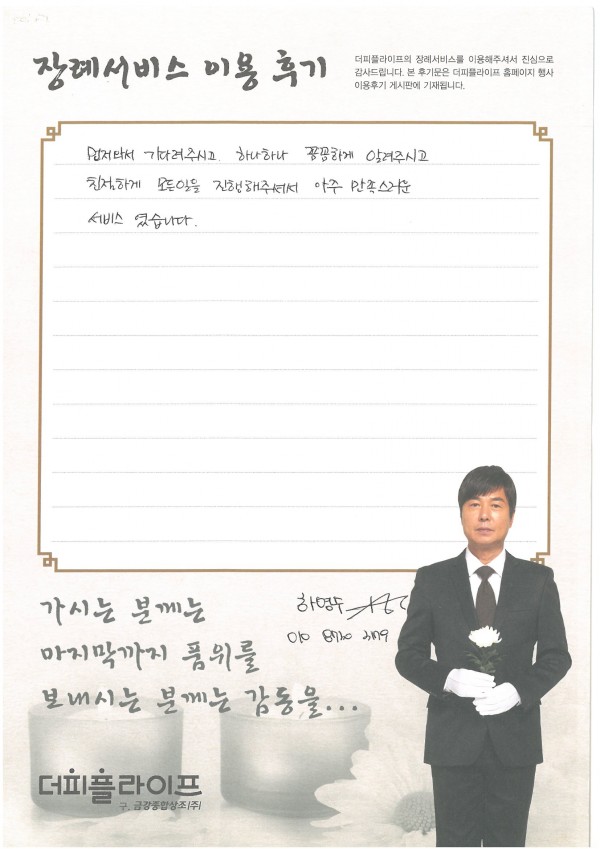 장례서비스 이용 후기
더피플라이프의 장례서비스를 이용해주셔서 진심으로
감사드립니다. 본 후기문은 더피플라이프 홈페이지 행사
이용후기 게시판에 기재됩니다.
먼저와서 기다려주시고 하나하나 꼼꼼하게 알려주시고
친절하게 모든일을 진행해주셔서 아주 만족스러운
서비스 였습니다.
하영수
010
가시는 분께는
마지막까지 품위를
보내시는 분께는 감동을...
더피플라이프
구. 금강종합상조(주)